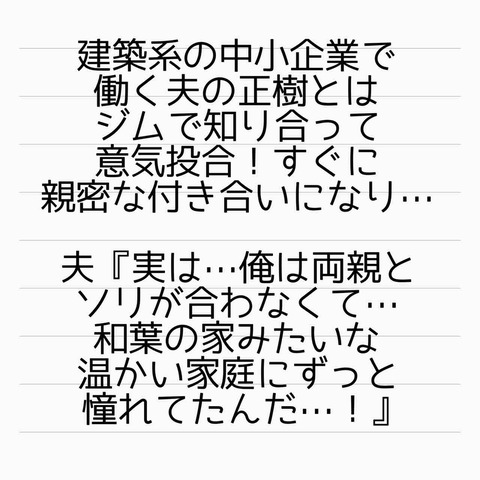 建築系の中小企業で
働く夫の正樹とは
ジムで知り合って
意気投合！すぐに
親密な付き合いになり…
夫『実は…俺は両親と
ソリが合わなくて…
和葉の家みたいな
温かい家庭にずっと
憧れてたんだ…！』